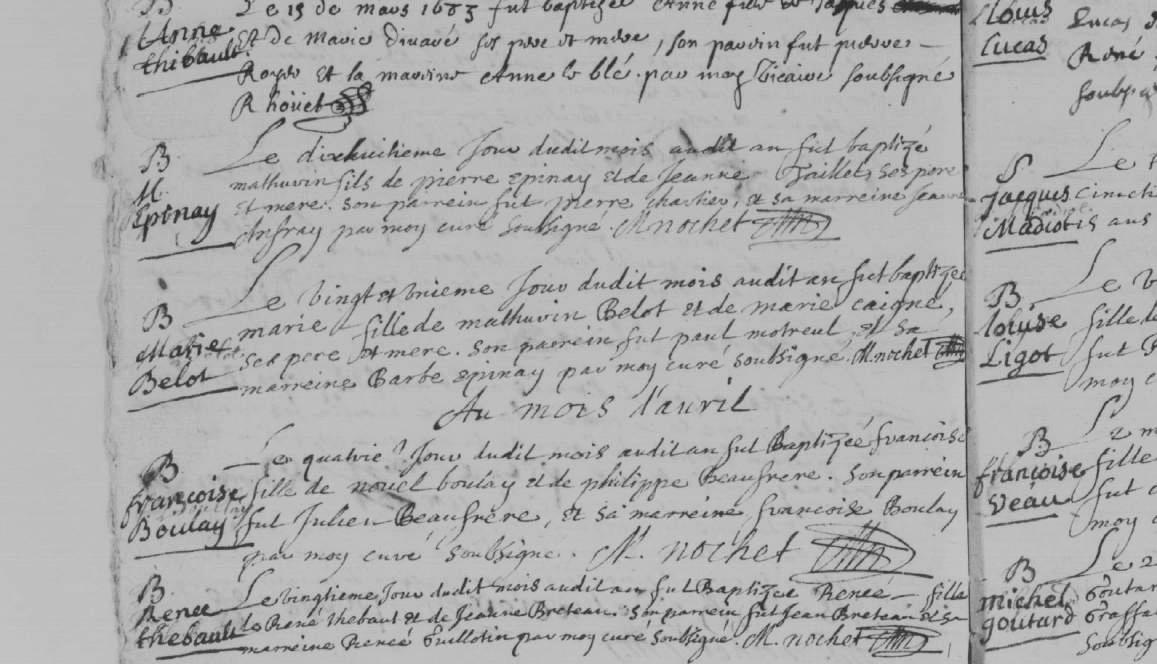 B
Anne
thibault
Le 15 de mars 1683 fut baptizee Anne fille de Jacques
Et de marie divaré ses pere et mere, son parrin fut pierre
Royer Et la marrine Anne le blé. par moy Vicaire soubsigné
R hoüet
B
M.
Epinay
Le dixhuitieme Jour dudit mois audit an fut baptizé
mathurin fils de pierre epinay et de Jeanne Taillet, ses pere
et mere. son parrein fut pierre charlier, et sa marreine jeanne
Anfray par moy curé soubsigné. M nochet
B
Marie
Belot
Le vingt et unieme Jour dudit mois audit an fut baptizee
marie fille de mathurin Belot et de marie caigné,
ses pere et mere. son parrein fut paul motreul, et sa
marreine Barbe epinay par moy curé soubsigné. M. nochet
Au mois d'auril
B
françoise
Boulay
Le quatrie? Jour dudit mois audit an fut Baptizéé françoise
fille de nouel boulay et de philippe Beaufrere. son parrein
fut Julien Beaufrere, et sa marreine françoise Boulay
par moy curé soubsigne. M. nochet
B
Renee
thebault
Le vingtieme Jour dudit mois audit an fut Baptizee Renéé fille
de René thebaut et de Jeanne Breteau. son parrein fut Jean Breteau et sa
marreine Renéé Guillotin par moy curé soubsigné. M. nochet
Louis
Lucas
Lucas
René
soubsig
S
jacques
Madiot
Le
cinch
is aus
B
loüyse
Ligot
Le v
fille de
fut
moy c
B
françoise
Veau
Le m
fille
fut
moy
B
michel
goutard
Le 2
Goutar
Graffa
soubsig